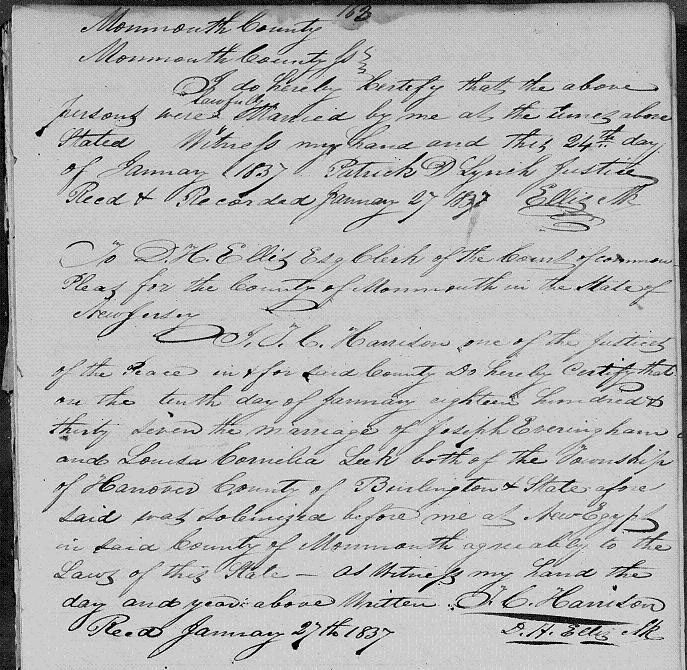 163
Monmouth County
Monmouth County ss
I do hereby Certify that the above
lawfully
persons were Married by me at the time above
Stated Witness my hand and this 24th day
of January 1837. Patrick D Lynch Justice
Recd & Recorded January 27 1837 Ellis Clk
To D. H. Ellis Esq Clerk of the Court of common
Pleas for the County of Monmouth in the State of
New Jersey
I, T. C. Harrison one of the Justices
of the Peace in & for said County Do hereby Certify that
on the tenth day of January eighteen hundred &
thirty seven the marriage of Joseph Everingham
and Louisa Cornelia Leek both of the Township
of Hanover County of Burlington & State afore
said was solemized before me at New Egypt
in said County of Monmouth agreeably to the
Laws of this State — As Witness my hand the
day and year above Written. T. C. Harrison
Recd January 27th 1837 D. H. Ellis Clk